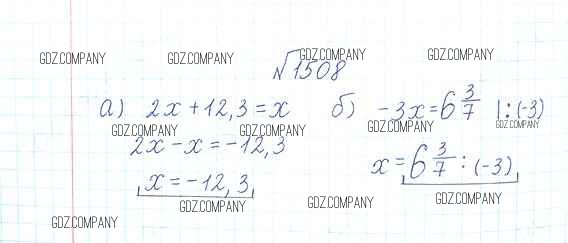 GDZ.COMPANY GDZ.COMPANY GDZ.COMPANY GDZ.COMPANY
√1508
а) 2x + 12,3 = x б) -3x = 6 3/7 |:(-3)
GDZ.COMPANY GDZ.COMPANY GDZ.COMPANY GDZ.COMPANY
2x - x = -12,3
x = 6 3/7 : (-3)
x = -12,3
GDZ.COMPANY GDZ.COMPANY GDZ.COMPANY
GDZ.COMPANY